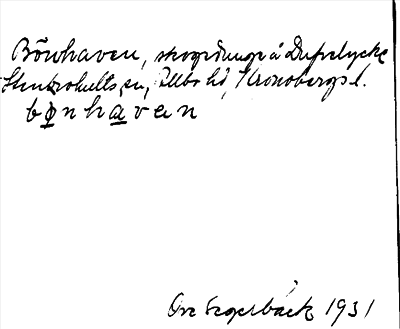 Bönhaven, skogsdunge å Dufvelycke
Stenbrohults sn, Allbo hd, Kronobergs l.
bønhaven
Ove 1931